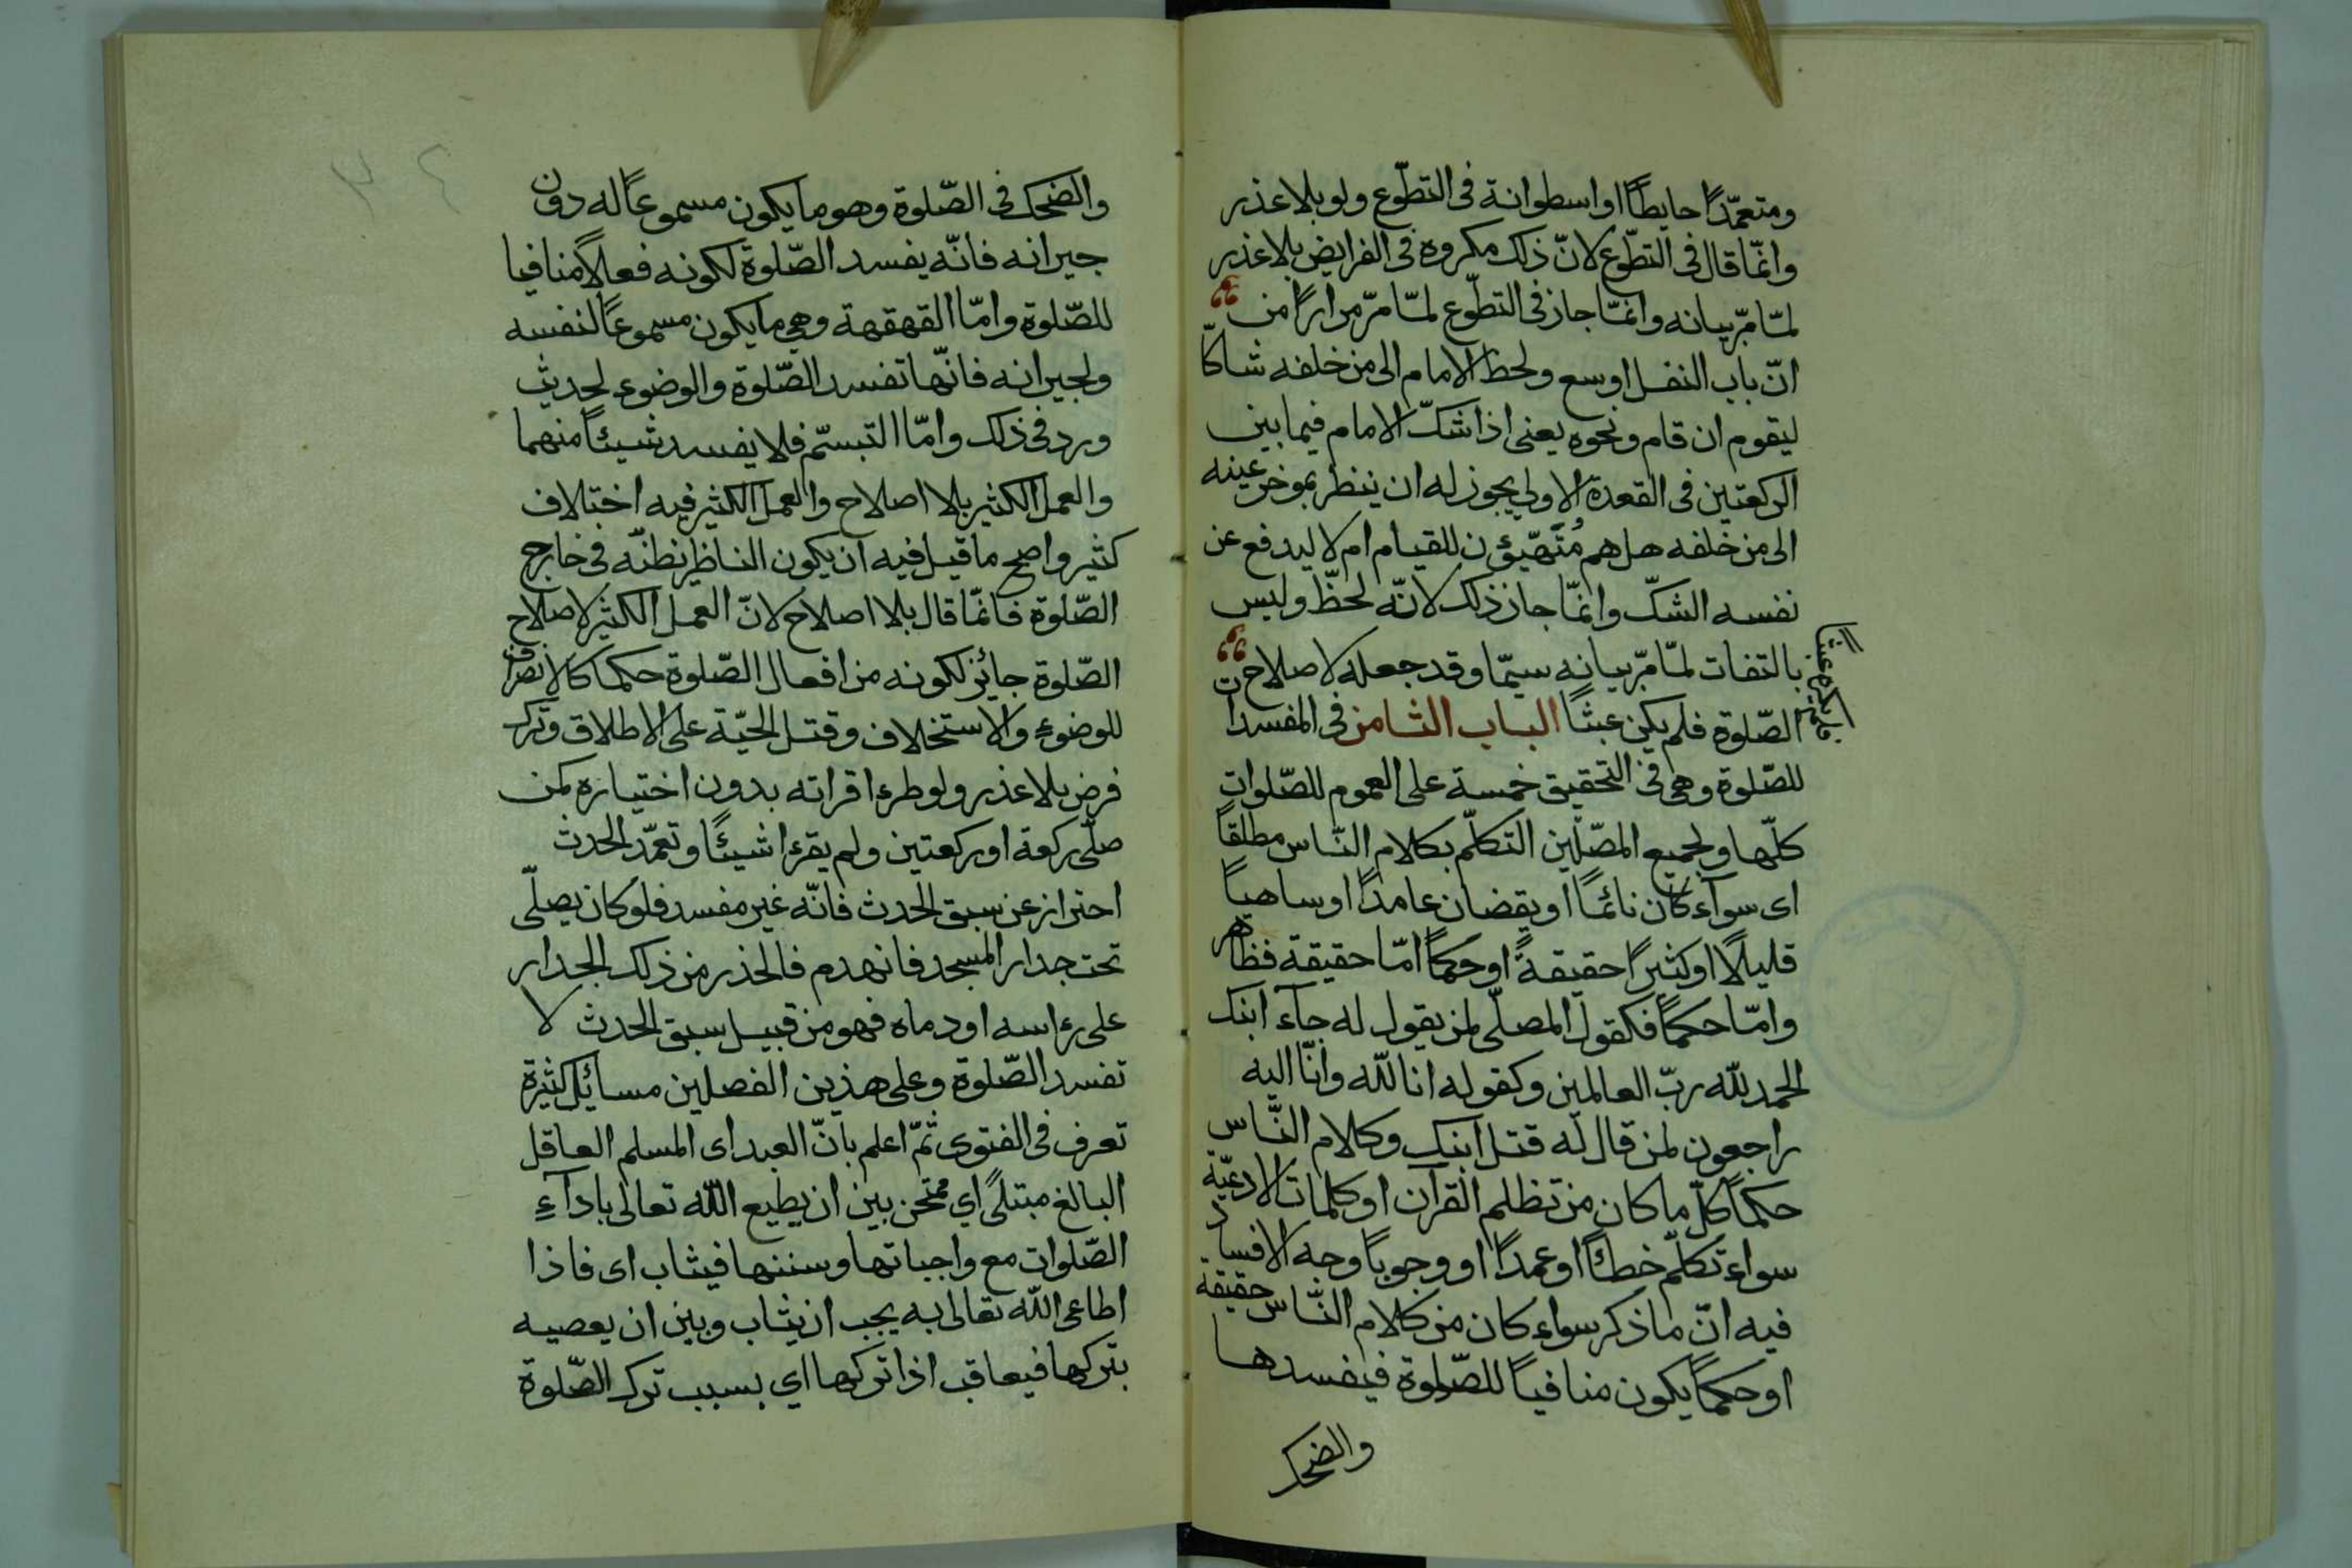 ومتعمّدًا حايطًا او اسطوانة فى التطّوع ولو بلا عذر
وانّما قال فى التطّوع لانّ ذلك مكروه فى الفرايض بلا عذر
لمّا مرّ بيانه وانمّا جاز فى التطّوع لمّا مرّ مرارًا من
انّ باب النفل اوسع ولحظ الامام الى من خلفه شاكّا
ليقوم ان قام ونحوه يعنى اذا شكّ الامام فيما بين
الركعتين فى القعدة الاولى يجوز له ان ينظر بموخر عينه
الى من خلفه هل هم مُتَهيّؤن للقيام ام لا ليدفع عن
نفسه الشكّ وانمّا جاز ذلك لانّه لحظّ وليس
بالتفات لمّا مرّ بيانه سيمّا وقد جعله لاصلاح
الصّلوة فلم يكن عبثًا الباب الثامن فى المفسدات
للصّلوة وهى فى التحقيق خمسة على العموم للصّلوات
كلّها ولجميع المصّلين التكلّم بكلام النّاس مطلقًا
اى سوآء كان نائمًا او يقضان عامدًا او ساهيًا
قليلًا او كثيرًا حقيقةً او حكمًا امّا حقيقة فظاهر
وامّا حكمًا فكقول المصلّى لمن يقول له جآء ابنك
الحمد للّه ربّ العالمين وكقوله انا للّه وانّا اليه
راجعون لمن قال له قتل ابنك وكلام النّاس
حكمًا كلّ ما كان من تظلم القرآن او كلمات الادعيّة
سواء تكلّم خطئًا او عمدًا او وجوبًا وجه الافساد
فيه انّ ما ذكر سواء كان من كلام النّاس حقيقة
او حكمًا يكون منافيًا للصّلوة فيفسدها
والضحك
فلم يكن عبثا
٣٤
والضحك فى الصّلوة وهو ما يكون مسموعًا له دون
جيرانه فانّه يفسد الصّلوة لكونه فعلًا منافيا
للصّلوة وامّا القهقهة وهى ما يكون مسموعًا لنفسه
ولجيرانه فانّها تفسد الصّلوة والوضوء لحديث
ورد فى ذلك وامّا التبسّم فلا يفسد شيئًا منهما
والعمل الكثير بلا اصلاح والعمل الكثير فيه اختلاف
كثير واصح ما قيل فيه ان يكون الناظر نظنّه فى خارج
الصّلوة فانمّا قال بلا اصلاح لانّ العمل الكثير لاصلاح
الصّلوة جائز لكونه من افعال الصّلوة حكما كالانصراف
للوضوء والاستخلاف وقتل الحيّة على الاطلاق وترك
فرض بلا عذر ولو طرء اقراته بدون اختياره كمن
صلّى ركعة او ركعتين ولم يقرء اشيئًا وتعمّد الحدث
احتراز عن سبق الحدث فانّه غير مفسد فلو كان يصلّى
تحت جدار المسجد فانهدم فالحذر من ذلك الجدار
على رءاسه او دماه فهو من قبيل سبق الحدث لا
تفسد الصّلوة وعلى هذين الفصلين مسائل كثيرة
تعرف فى الفتوى ثمّ اعلم بانّ العبد اى المسلم العاقل
البالغ مبتلًى اي ممتحن بين ان يطيع اللّه تعالى باداءِ
الصّلوات مع واجباتها وسننها فيثاب اى فاذا
اطاعى اللّه تعالى به يجب ان يثاب وبين ان يعصيه
بتركها فيعاقب اذا تركها اي بسبب ترك الصّلوة